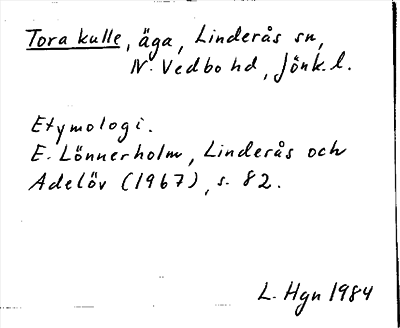 Tora kulle, äga, Linderås sn,
N. Vedbo hd, Jönk. l.
Etymologi.
E. Lönnerholm, Linderås och
Adelöv (1967), s. 82.
L. Hgn 1984